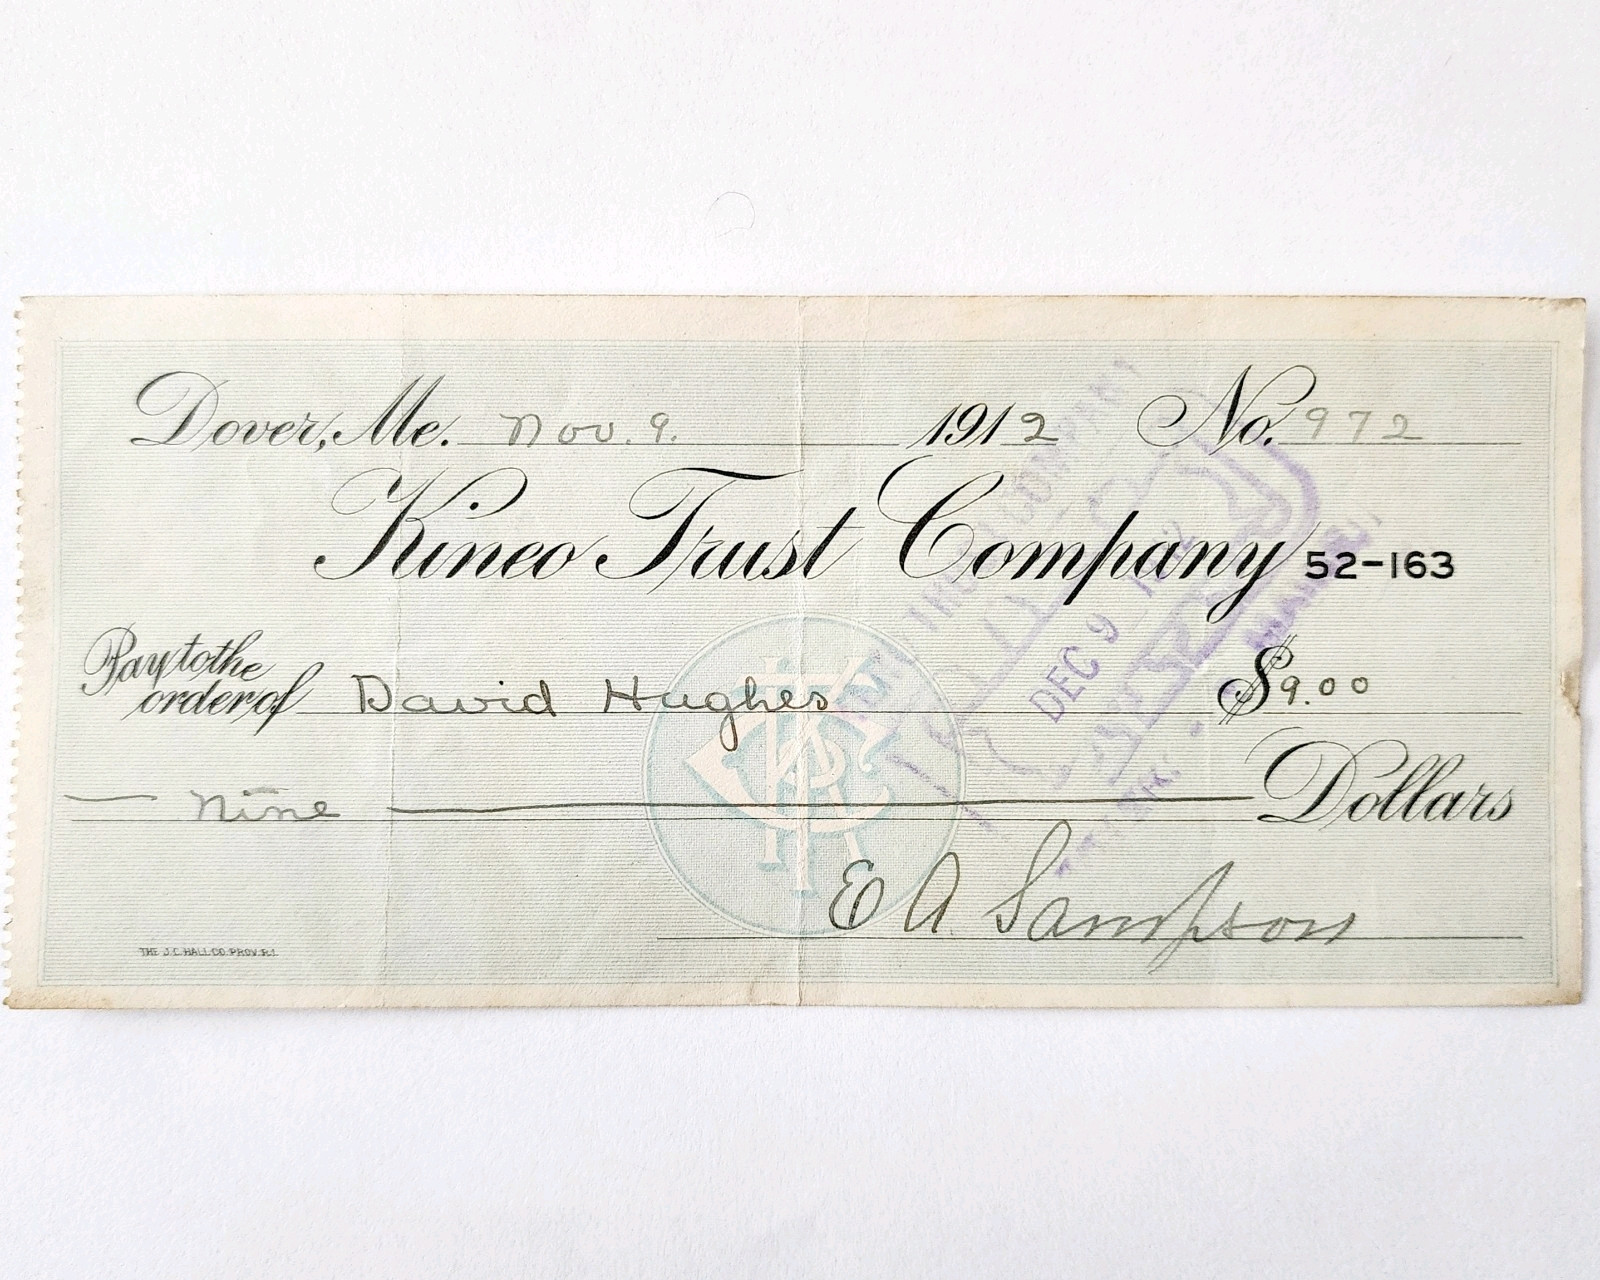 Dover, Me. Nov. 9. 1912 No. 972
Kineo Trust Company 52-163
Pay to the
order of David Hughes $9.00
Nine Dollars
E A Sampson
THE J.C. HALL CO. PROV. R.I.
TRUST COMPANY
DEC 9 1912
MAINE